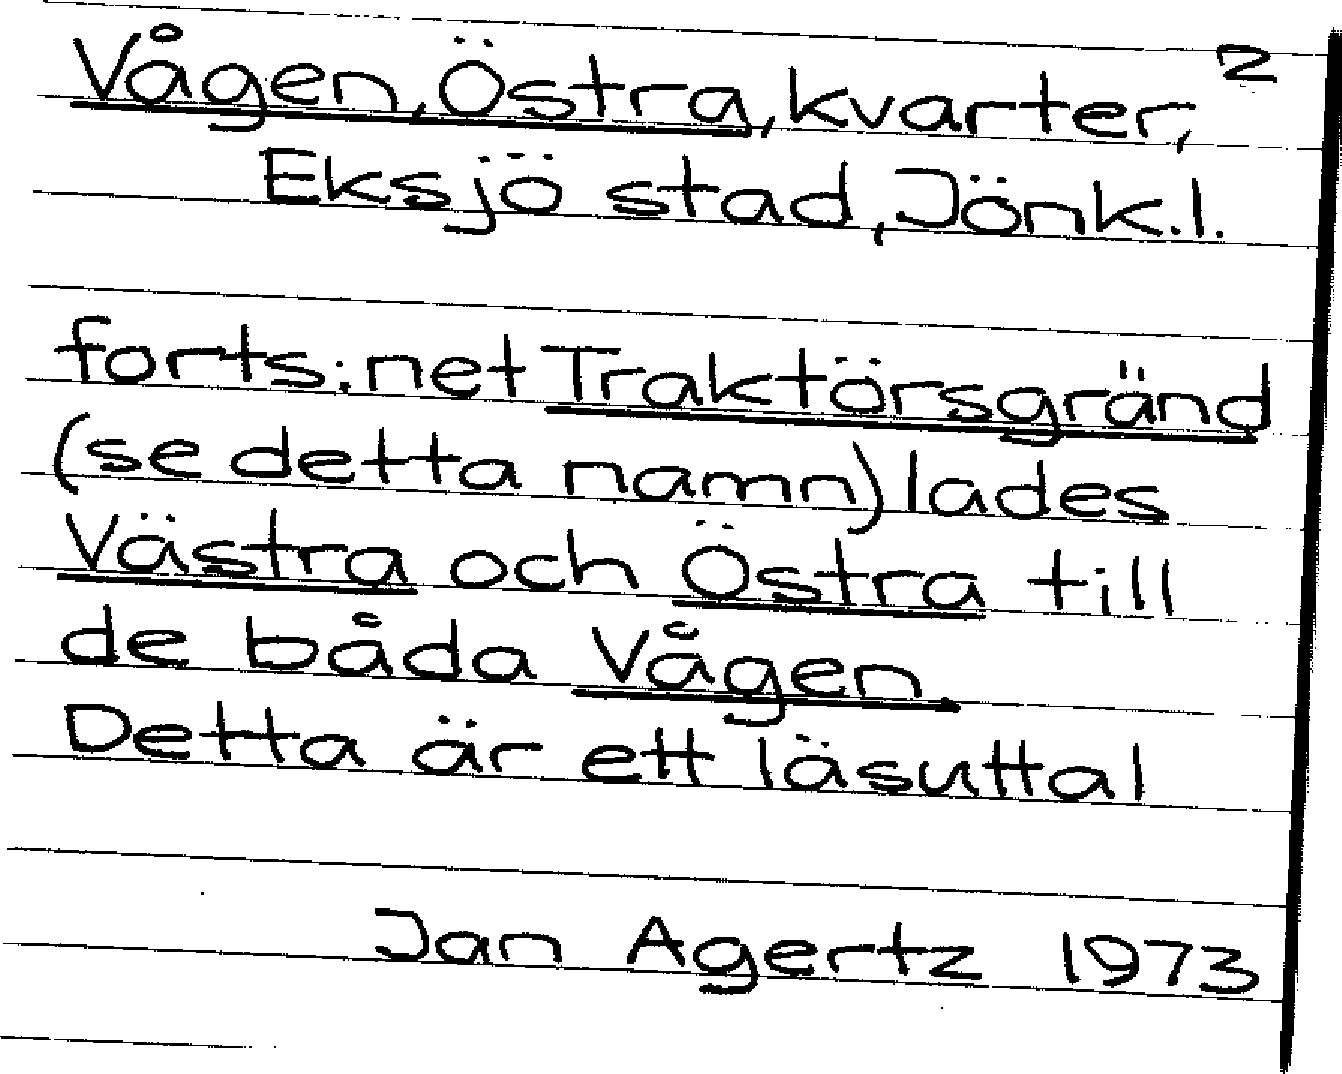 Vågen, Östra, kvarter, 2
Eksjö stad, Jönk.l.
forts: net Traktörsgränd
(se detta namn) lades
Västra och Östra till
de båda Vågen.
Detta är ett läsuttal
Jan Agertz 1973